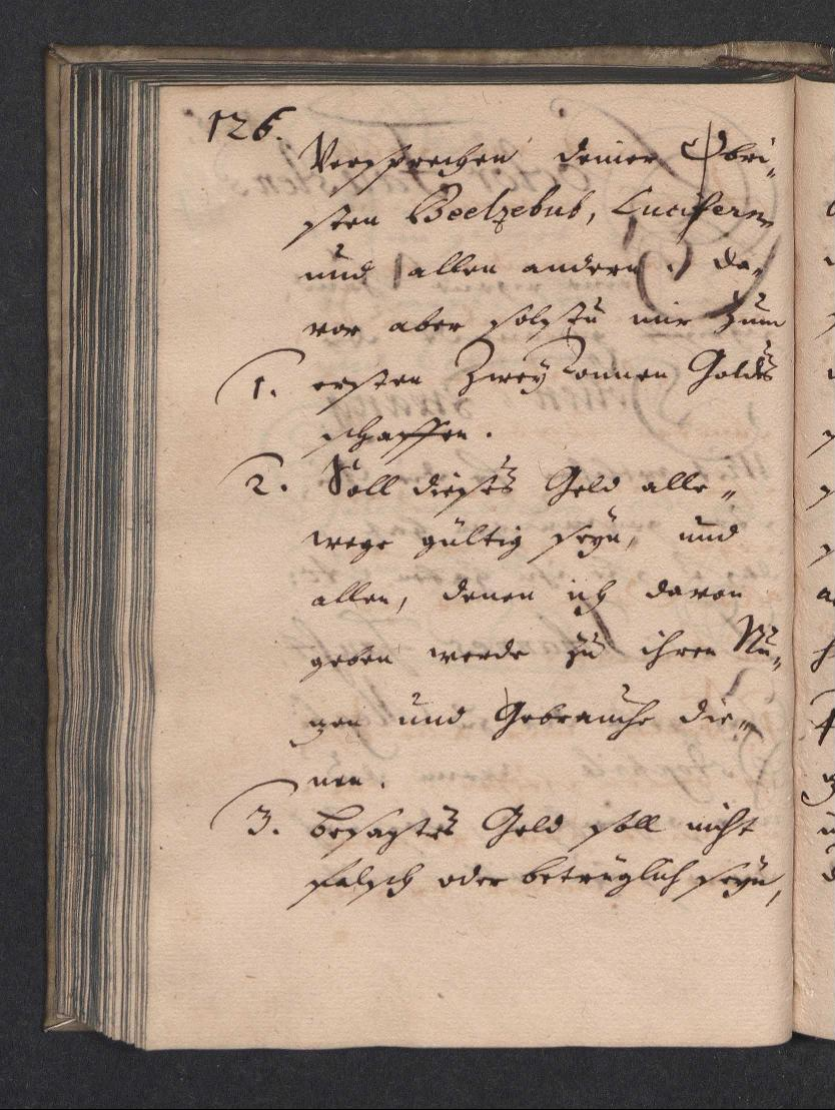 126.
Versprechen deiner Obri-
sten Beelzebub, Lucifern
und allen andern. da-
vor aber solstu mir zum
1. ersten Zwey Tonnen Goldes
schaffen.
2. Soll dieses Geld alle-
wege gültig seyn, und
allen, denen ich davon
geben werde zu ihren Nu-
zen und Gebrauche die-
nen.
3. besagtes Geld soll nicht
falsch oder betrüglich seyn,